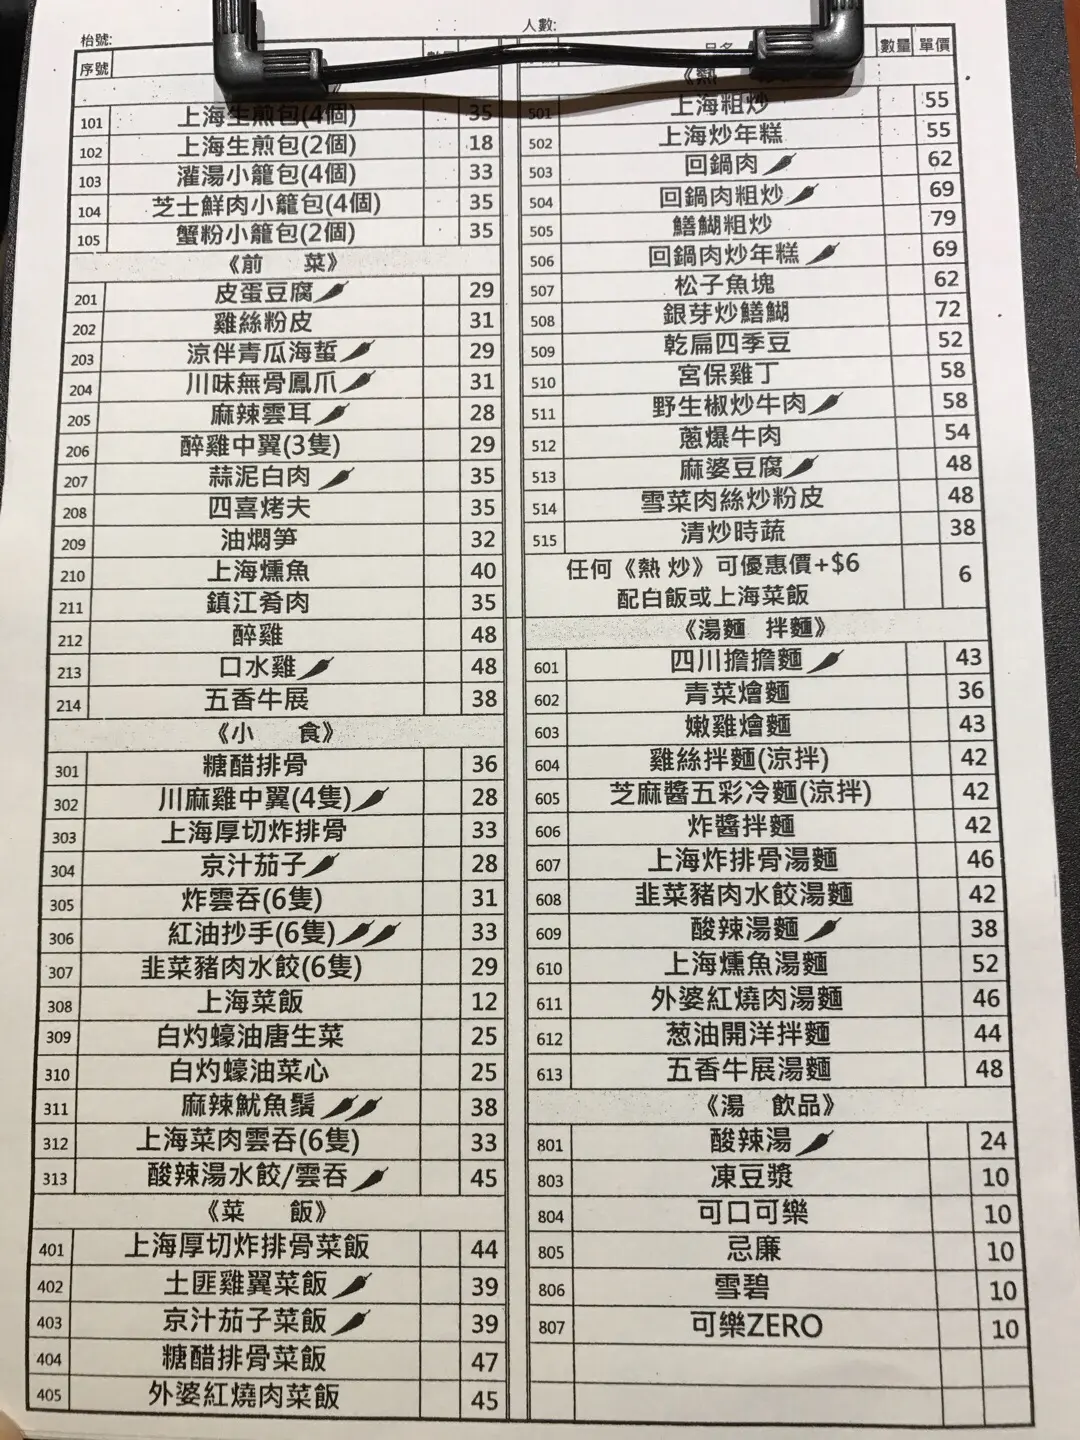 枱號:
序號
101 上海生煎包(4個) 35
102 上海生煎包(2個) 18
103 灌湯小籠包(4個) 33
104 芝士鮮肉小籠包(4個) 35
105 蟹粉小籠包(2個) 35
《前 菜》
201 皮蛋豆腐 29
202 雞絲粉皮 31
203 涼伴青瓜海蜇 29
204 川味無骨鳳爪 31
205 麻辣雲耳 28
206 醉雞中翼(3隻) 29
207 蒜泥白肉 35
208 四喜烤夫 35
209 油燜笋 32
210 上海燻魚 40
211 鎮江肴肉 35
212 醉雞 48
213 口水雞 48
214 五香牛展 38
《小 食》
301 糖醋排骨 36
302 川麻雞中翼(4隻) 28
303 上海厚切炸排骨 33
304 京汁茄子 28
305 炸雲吞(6隻) 31
306 紅油抄手(6隻) 33
307 韭菜豬肉水餃(6隻) 29
308 上海菜飯 12
309 白灼蠔油唐生菜 25
310 白灼蠔油菜心 25
311 麻辣魷魚鬚 38
312 上海菜肉雲吞(6隻) 33
313 酸辣湯水餃/雲吞 45
《菜 飯》
401 上海厚切炸排骨菜飯 44
402 土匪雞翼菜飯 39
403 京汁茄子菜飯 39
404 糖醋排骨菜飯 47
405 外婆紅燒肉菜飯 45
人數:
品名 數量 單價
《熱
501 上海粗炒 55
502 上海炒年糕 55
503 回鍋肉 62
504 回鍋肉粗炒 69
505 鱔鰗粗炒 79
506 回鍋肉炒年糕 69
507 松子魚塊 62
508 銀芽炒鱔鰗 72
509 乾扁四季豆 52
510 宮保雞丁 58
511 野生椒炒牛肉 58
512 蔥爆牛肉 54
513 麻婆豆腐 48
514 雪菜肉絲炒粉皮 48
515 清炒時蔬 38
任何《熱 炒》可優惠價+$6
配白飯或上海菜飯 6
《湯麵 拌麵》
601 四川擔擔麵 43
602 青菜燴麵 36
603 嫩雞燴麵 43
604 雞絲拌麵(涼拌) 42
605 芝麻醬五彩冷麵(涼拌) 42
606 炸醬拌麵 42
607 上海炸排骨湯麵 46
608 韭菜豬肉水餃湯麵 42
609 酸辣湯麵 38
610 上海燻魚湯麵 52
611 外婆紅燒肉湯麵 46
612 葱油開洋拌麵 44
613 五香牛展湯麵 48
《湯 飲品》
801 酸辣湯 24
803 凍豆漿 10
804 可口可樂 10
805 忌廉 10
806 雪碧 10
807 可樂ZERO 10